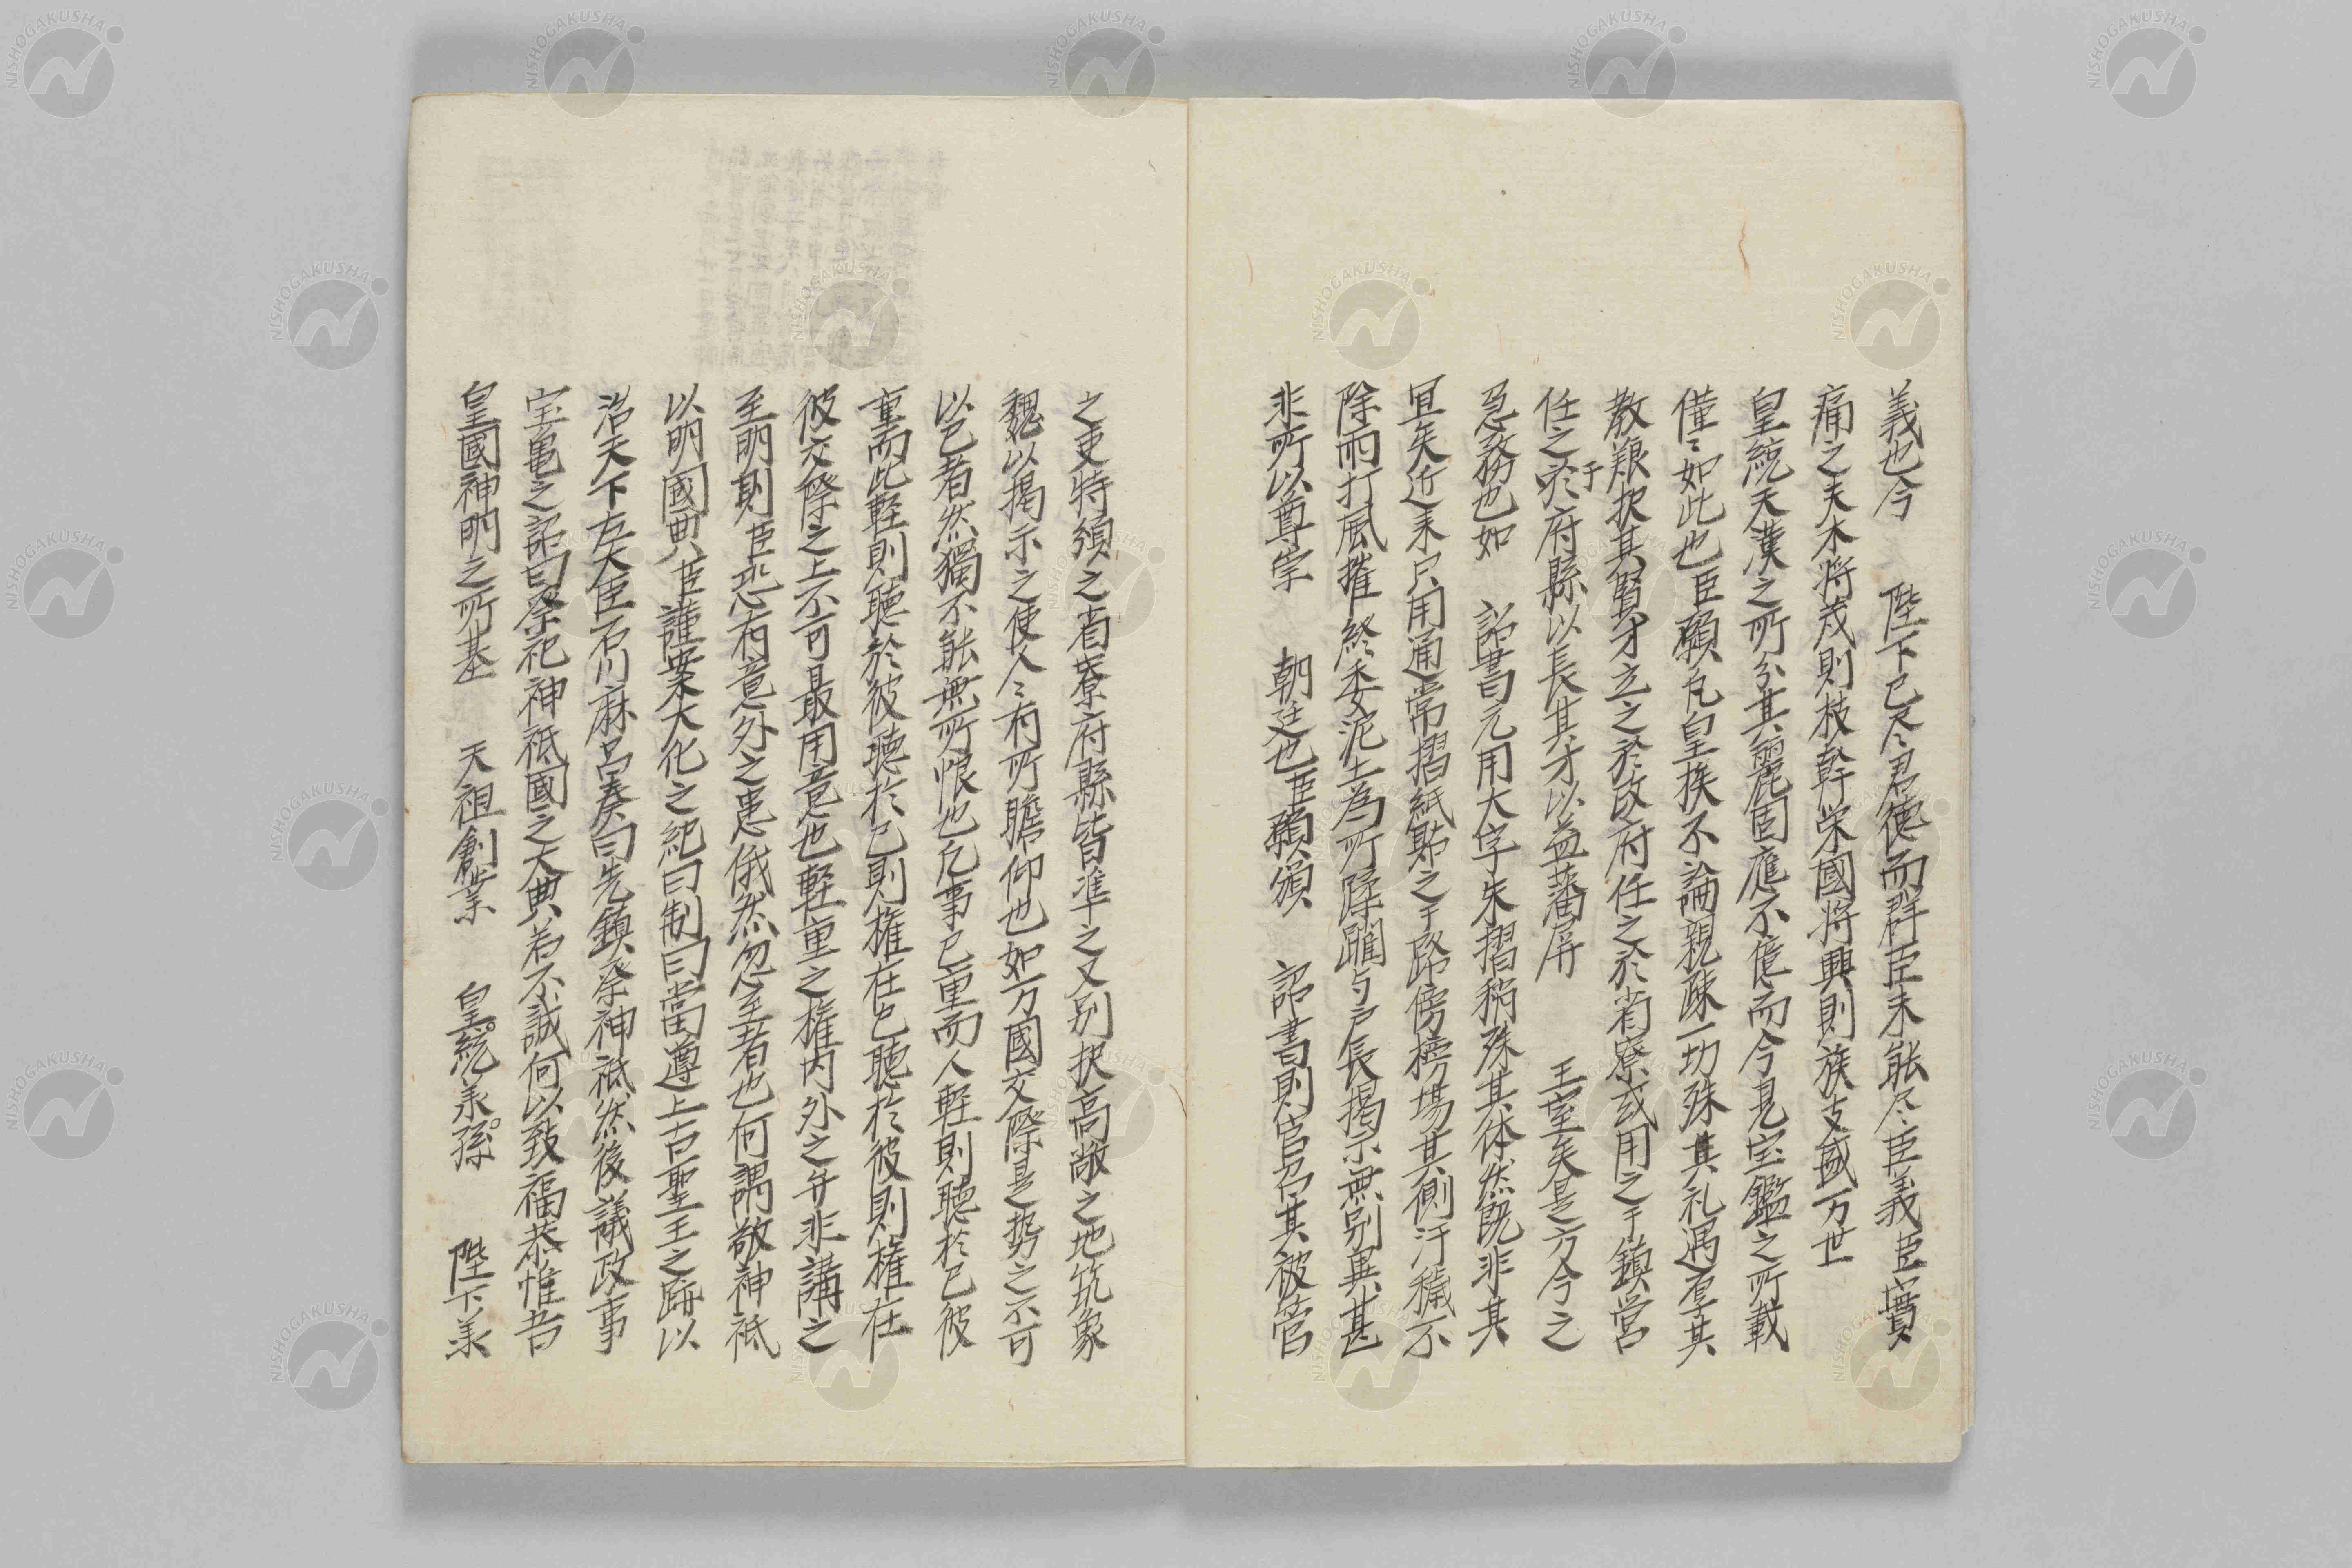 義也今 陛下已尽君德而群臣未能尽臣義臣實
痛之夫木将茂則枝幹栄國将興則族支盛万世
皇統天潢之所分其麗固應不億而今見宝鑑之所載
僅〻如此也臣願凡皇族不論親疎一切殊其礼遇厚其
教艱択其賢才立之於政府任之於省寮或用之于鎮営
任之於于府縣以長其才以益藩屏 王室矣是方今之
急務也如 詔書元用大字朱摺稍殊其体然既非其
宜矣近来只用通常摺紙貼之于路傍榜場其側汙穢不
除雨打風摧終委泥土為所蹂躙与戸長掲示無別異甚
非所以尊崇 朝廷也臣願頒 詔書則官召其被管
之吏特頒之省寮府縣皆準之又別択高敞之地筑象
魏以掲示之使人〻有所瞻仰也如万國交際是勢之不可
以已者然獨不能無所恨也凡事已重而人軽則聴於已彼
重而此軽則聴於彼聴於已則権在已聴於彼則権在
彼交際之上不可最用意也軽重之権内外之弁非講之
至明則臣恐有意外之患俄然忽至者也何謂敬神祇
以明國典臣謹案大化之紀曰制曰當遵上古聖王之跡以
治天下左大臣石川麻呂奏曰先鎮祭神祇然後議政事
宝亀之詔曰祭祀神祇國之大典若不誠何以致福恭惟吾
皇國神明之所基 天祖創業 皇統羕孫 陛下羕
NISHOGAKUSHA